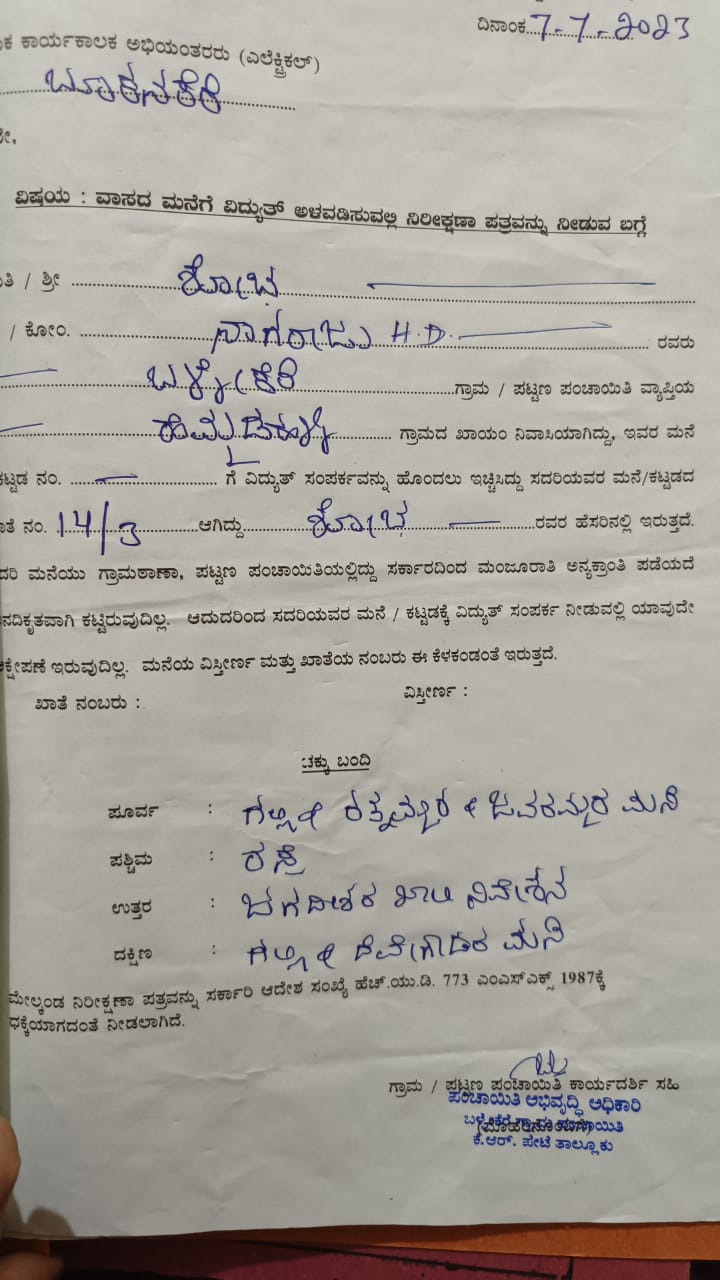 ದಿನಾಂಕ 7-7-2023
ಕ ಕಾರ್ಯಕಾಲಕ ಅಭಿಯಂತರರು (ಎಲೆಕ್ಟ್ರಿಕಲ್)
ಬೂಕನಕೆರೆ
ವಿಷಯ : ವಾಸದ ಮನೆಗೆ ವಿದ್ಯುತ್ ಅಳವಡಿಸುವಲ್ಲಿ ನಿರೀಕ್ಷಣಾ ಪತ್ರವನ್ನು ನೀಡುವ ಬಗ್ಗೆ
ತಿ / ಶ್ರೀ ಶೋಭ
/ ಕೋಂ. ನಾಗರಾಜು H.D. ರವರು
ಬಳ್ಳೇಕೆರೆ ಗ್ರಾಮ / ಪಟ್ಟಣ ಪಂಚಾಯಿತಿ ವ್ಯಾಪ್ತಿಯ
ಗ್ರಾಮದ ಖಾಯಂ ನಿವಾಸಿಯಾಗಿದ್ದು, ಇವರ ಮನೆ
ಕಟ್ಟಡ ನಂ. ಗೆ ವಿದ್ಯುತ್ ಸಂಪರ್ಕವನ್ನು ಹೊಂದಲು ಇಚ್ಚಿಸಿದ್ದು ಸದರಿಯವರ ಮನೆ/ಕಟ್ಟಡದ
ತೆ ನಂ. 14/3 ಆಗಿದ್ದು ಶೋಭ ರವರ ಹೆಸರಿನಲ್ಲಿ ಇರುತ್ತದೆ.
ದರಿ ಮನೆಯು ಗ್ರಾಮಠಾಣಾ, ಪಟ್ಟಣ ಪಂಚಾಯಿತಿಯಲ್ಲಿದ್ದು ಸರ್ಕಾರದಿಂದ ಮಂಜೂರಾತಿ ಅನ್ಯಕ್ರಾಂತಿ ಪಡೆಯದೆ
ನದಿಕೃತವಾಗಿ ಕಟ್ಟಿರುವುದಿಲ್ಲ. ಆದುದರಿಂದ ಸದರಿಯವರ ಮನೆ / ಕಟ್ಟಡಕ್ಕೆ ವಿದ್ಯುತ್ ಸಂಪರ್ಕ ನೀಡುವಲ್ಲಿ ಯಾವುದೇ
ಕ್ಷೇಪಣೆ ಇರುವುದಿಲ್ಲ. ಮನೆಯ ವಿಸ್ತೀರ್ಣ ಮತ್ತು ಖಾತೆಯ ನಂಬರು ಈ ಕೆಳಕಂಡಂತೆ ಇರುತ್ತದೆ.
ಖಾತೆ ನಂಬರು : ವಿಸ್ತೀರ್ಣ :
ಚಕ್ಕು ಬಂದಿ
ಪೂರ್ವ : ಗಲ್ಲಿ & ರತ್ನಮ್ಮರ & ಜವರಮ್ಮರ ಮನೆ
ಪಶ್ಚಿಮ : ರಸ್ತೆ
ಉತ್ತರ : ಜಗದೀಶರ ಖಾಲಿ ನಿವೇಶನ
ದಕ್ಷಿಣ : ಗಲ್ಲಿ & ದೇವೇಗೌಡರ ಮನೆ
ಮೇಲ್ಕಂಡ ನಿರೀಕ್ಷಣಾ ಪತ್ರವನ್ನು ಸರ್ಕಾರಿ ಆದೇಶ ಸಂಖ್ಯೆ ಹೆಚ್.ಯು.ಡಿ. 773 ಎಂಎಸ್ಎಕ್ಸ್ 1987ಕ್ಕೆ
ಧಕ್ಕೆಯಾಗದಂತೆ ನೀಡಲಾಗಿದೆ.
ಗ್ರಾಮ / ಪಟ್ಟಣ ಪಂಚಾಯಿತಿ ಕಾರ್ಯದರ್ಶಿ ಸಹಿ
ಪಂಚಾಯಿತಿ ಅಭಿವೃದ್ಧಿ ಅಧಿಕಾರಿ
ಕೆ.ಆರ್. ಪೇಟೆ ತಾಲ್ಲೂಕು